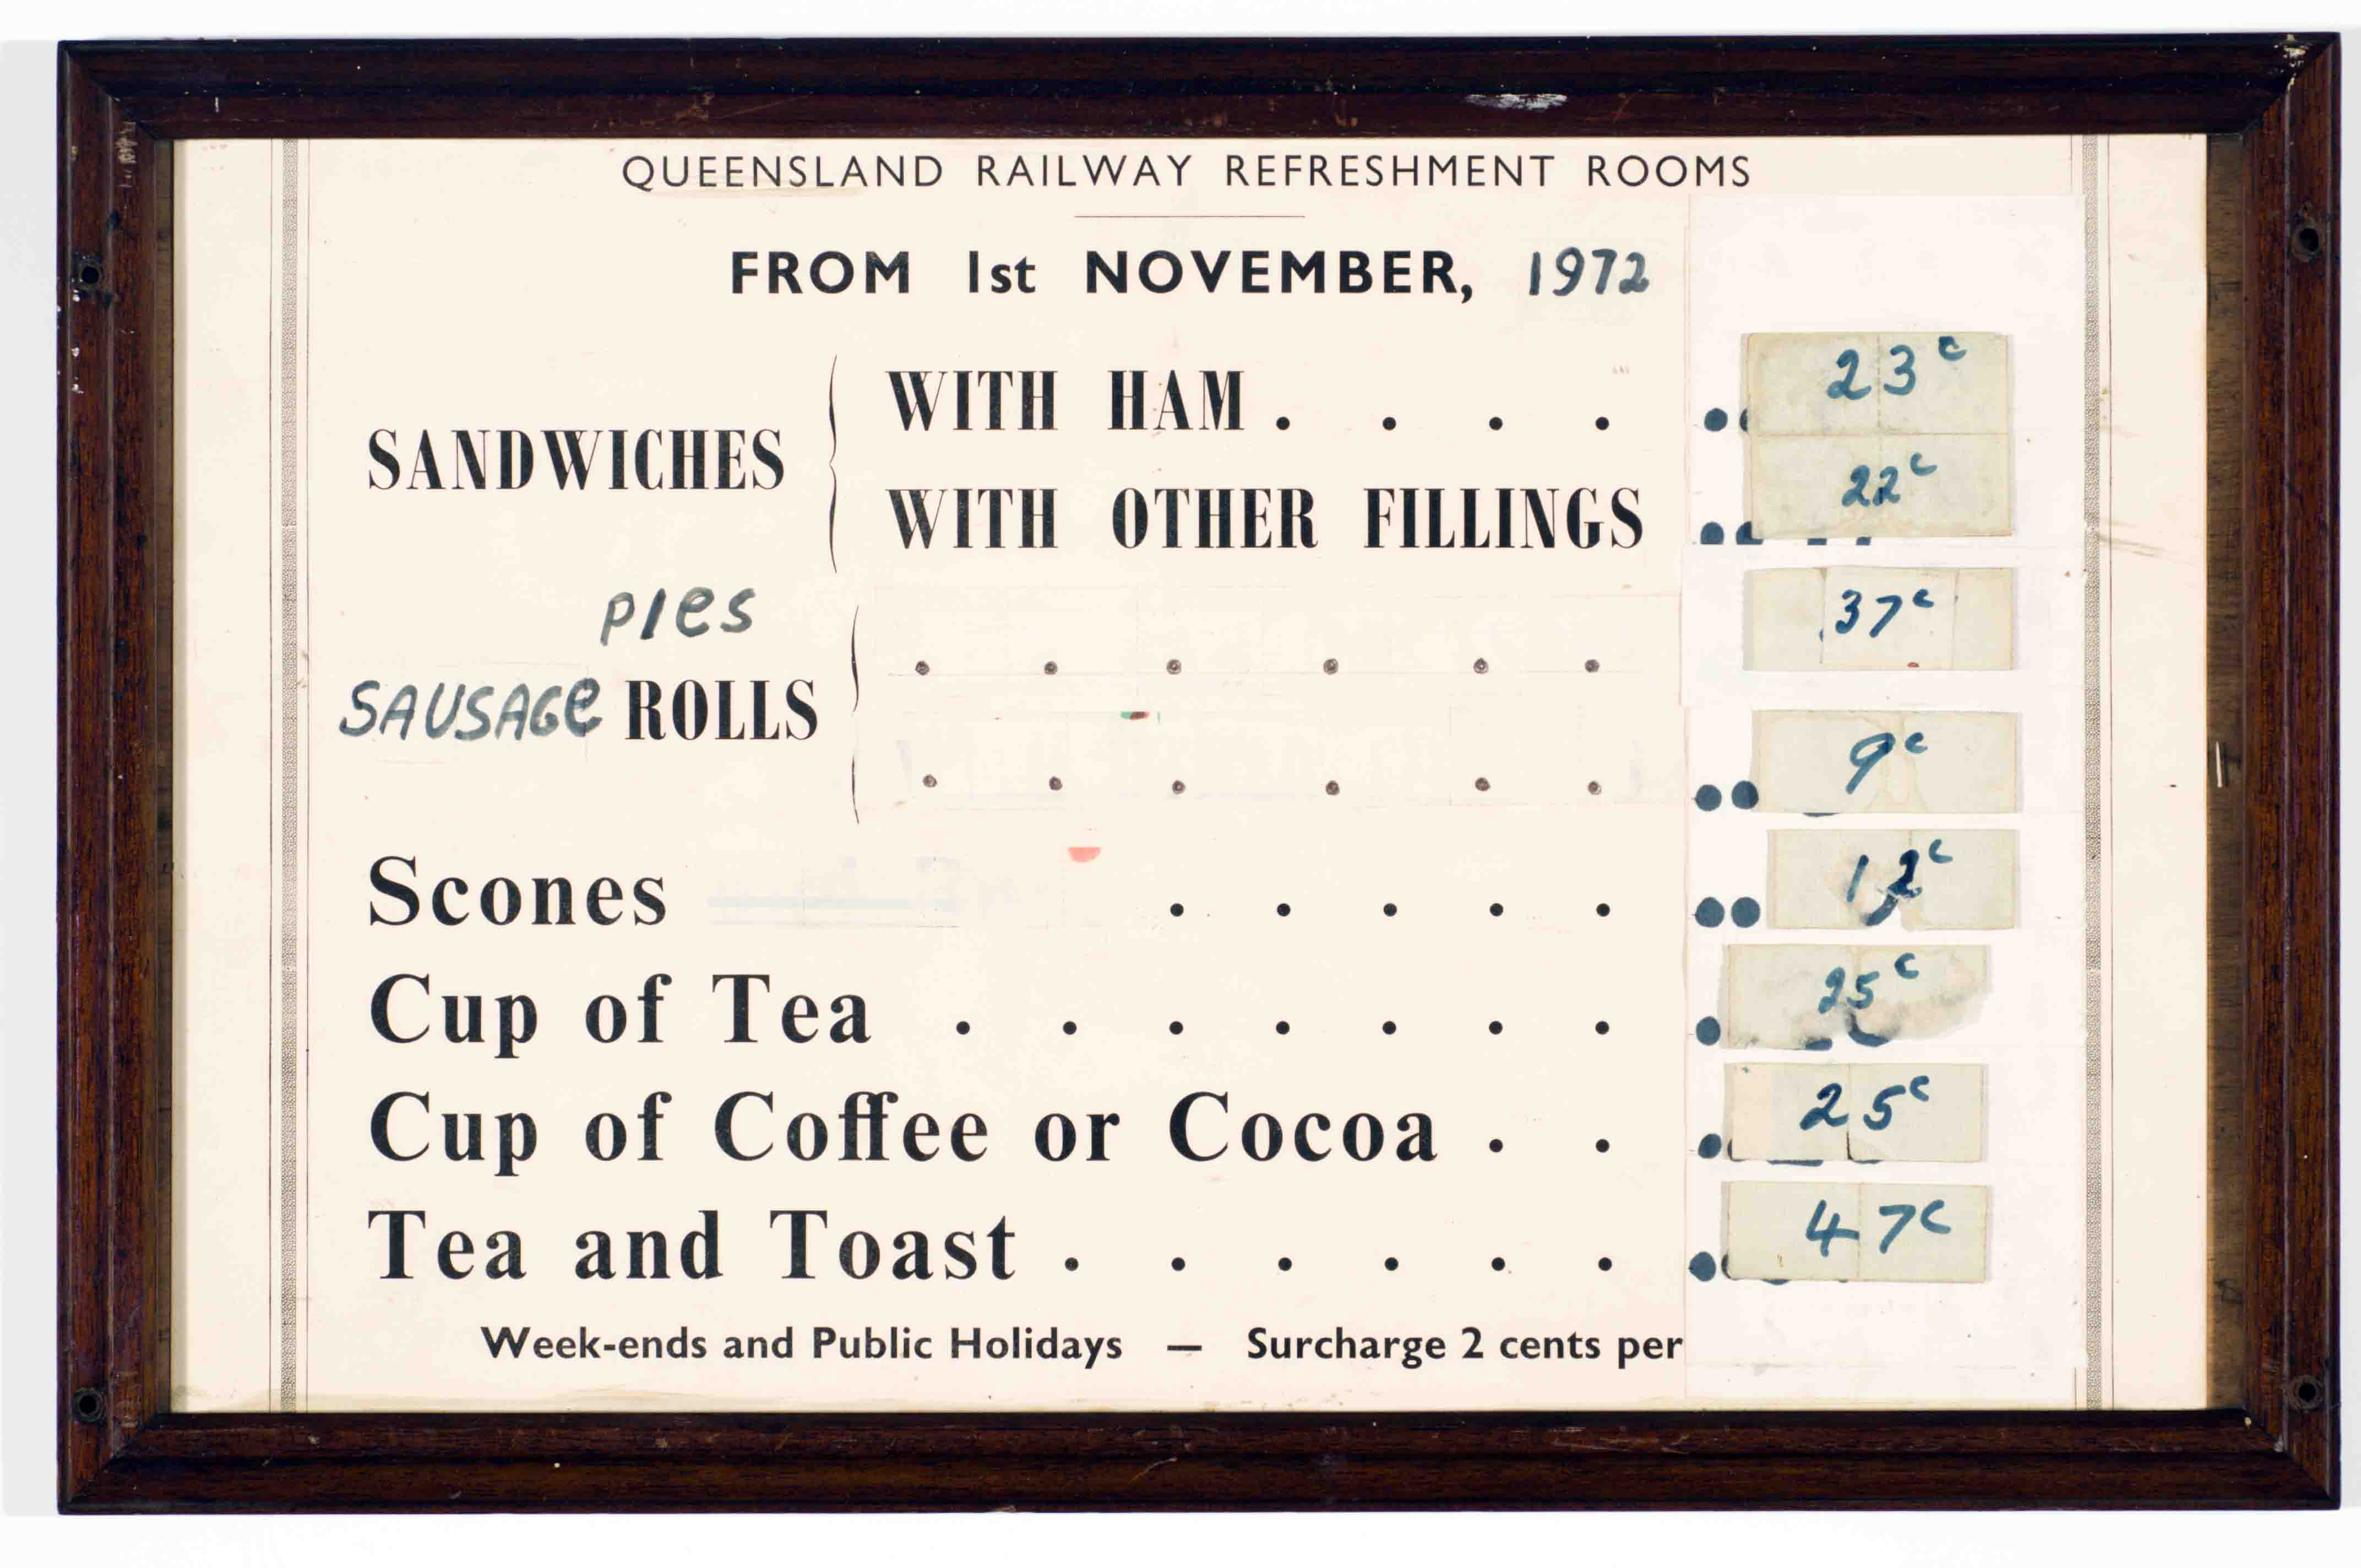 QUEENSLAND RAILWAY REFRESHMENT ROOMS
FROM 1st NOVEMBER, 1972
SANDWICHES
WITH HAM . . . . 23c
WITH OTHER FILLINGS 22c
PIes . . . . . . 37c
SAUSAGe ROLLS . . . . . . 9c
Scones . . . . . 12c
Cup of Tea . . . . . . . 25c
Cup of Coffee or Cocoa . . 25c
Tea and Toast . . . . . . 47c
Week-ends and Public Holidays — Surcharge 2 cents per